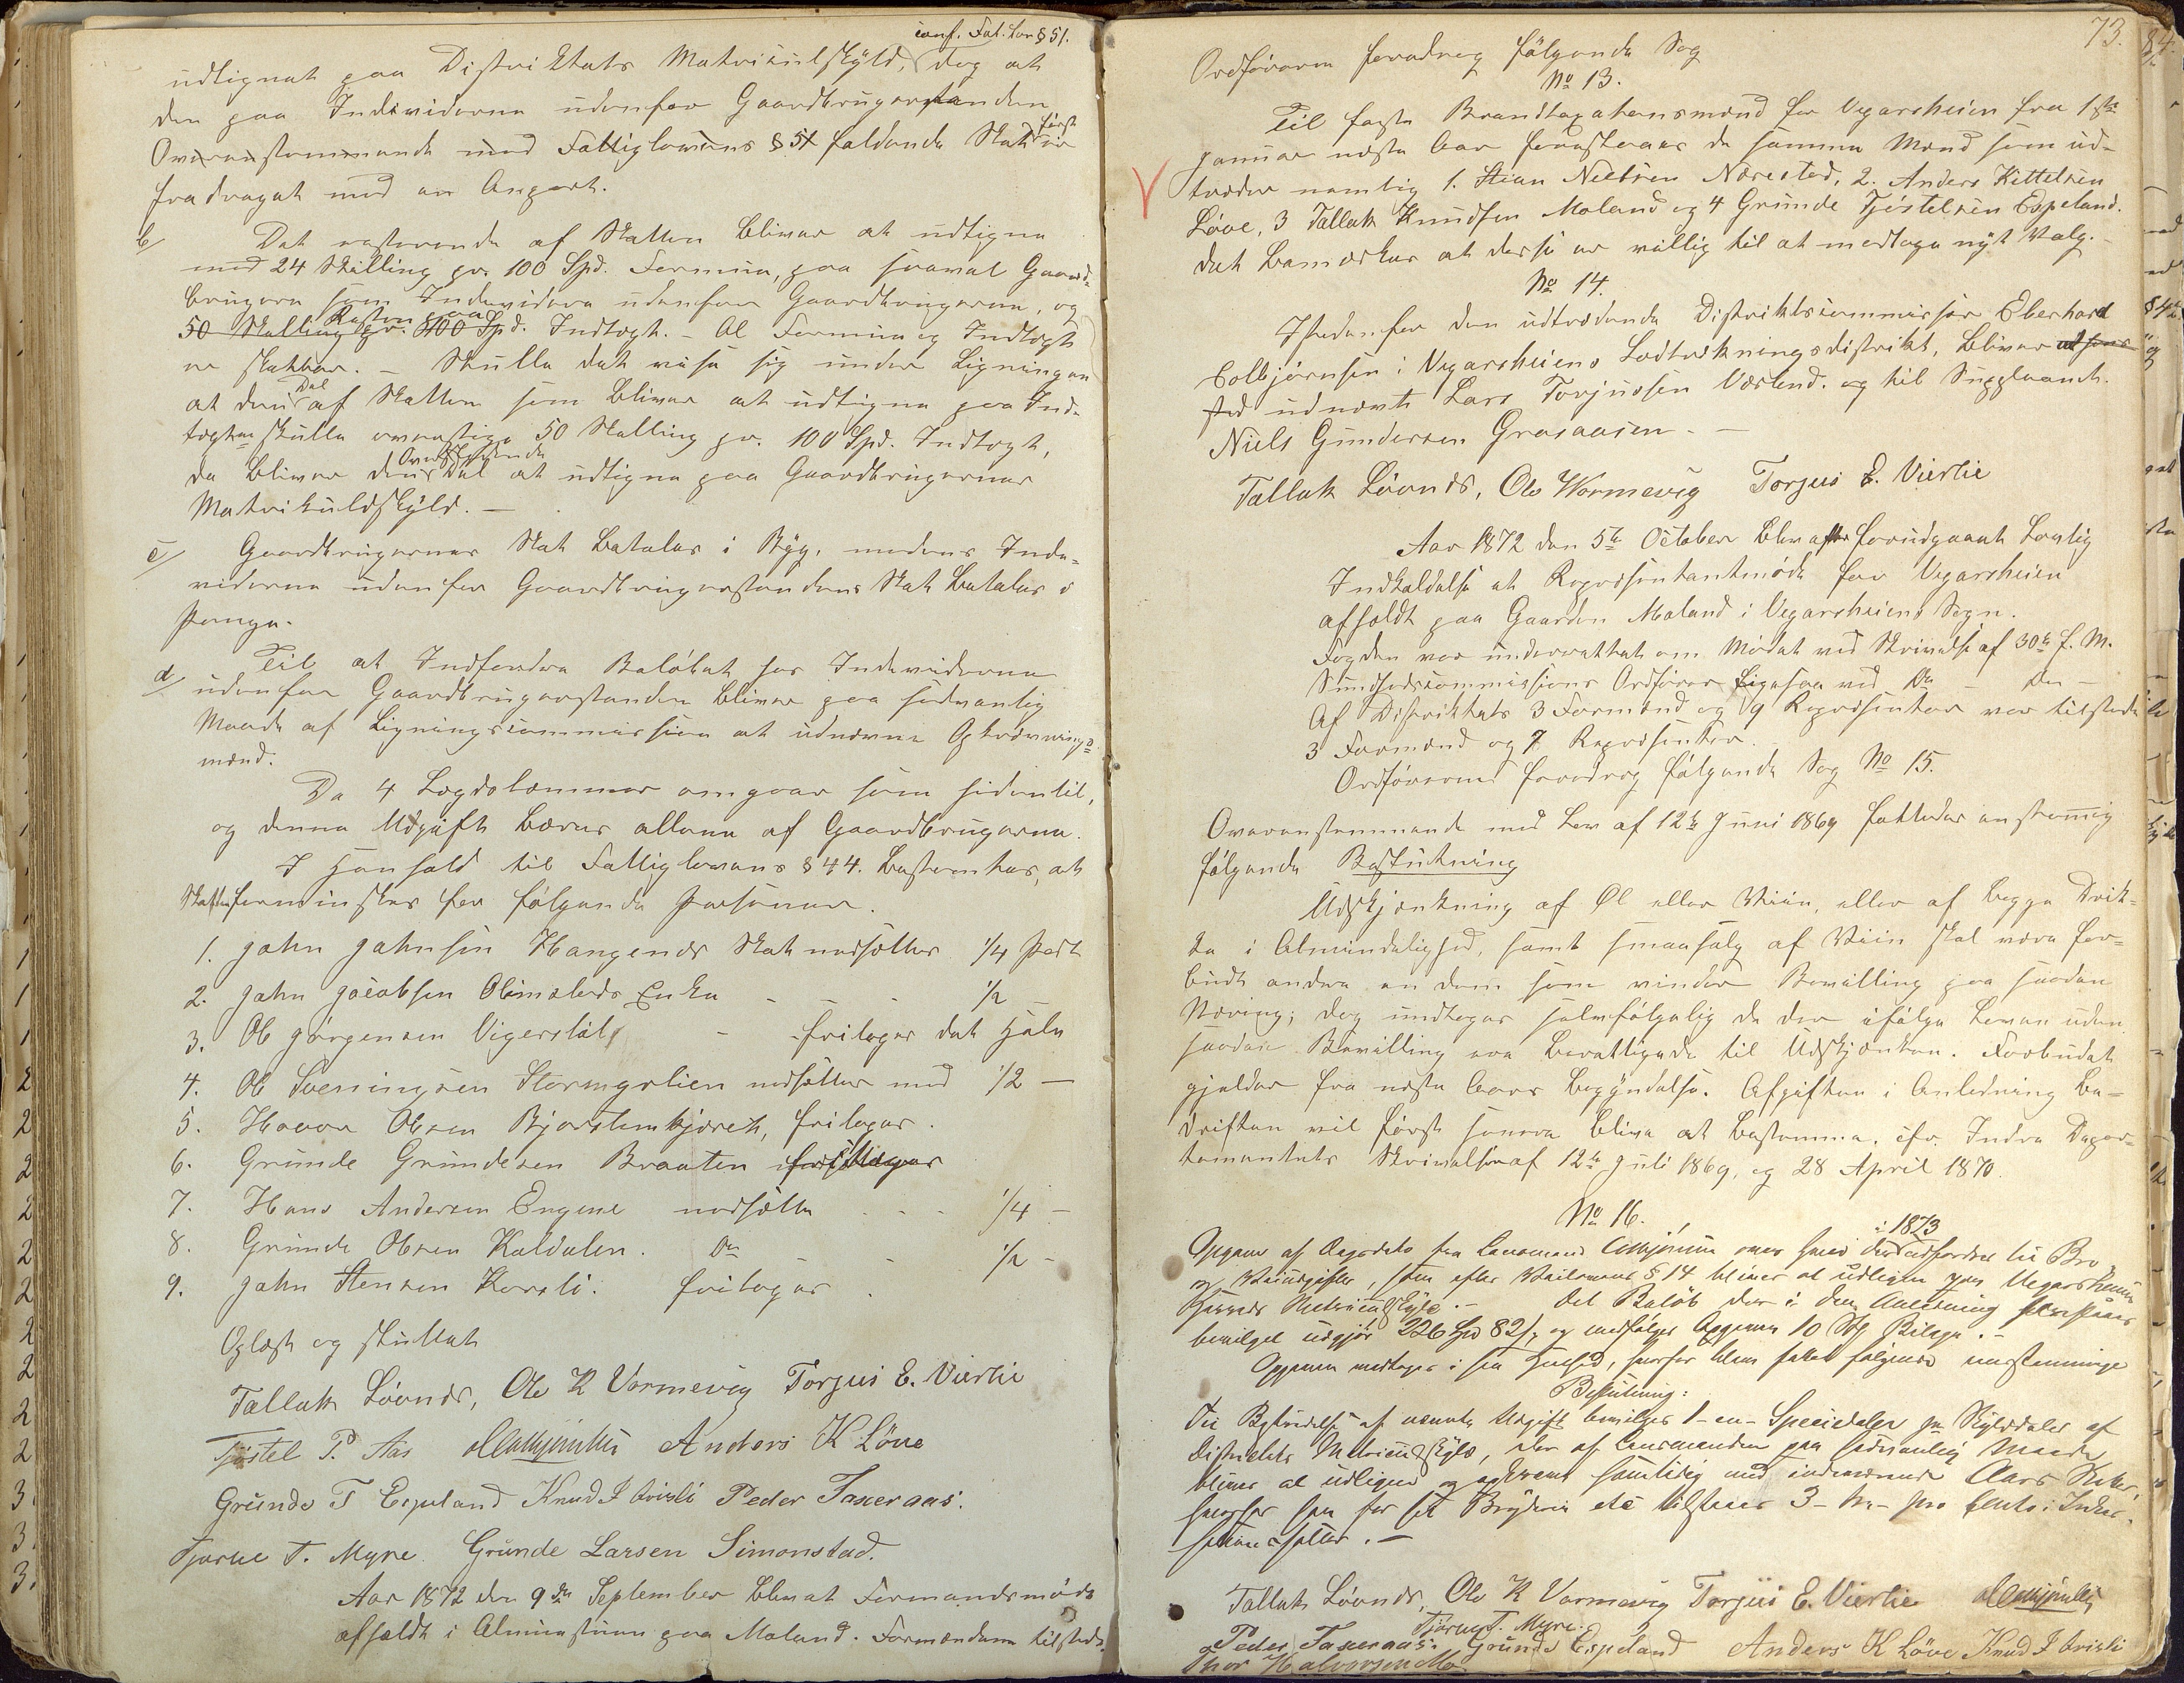 conf. Fat. Lov § 51.
udlignet paa Distriktets Matrikulskyld, dog at
den paa Individerne udenfor Gaardbrugerstanden
Overensstemmende med Fattiglovens § 51 faldende Skat først
fradraget med en Anpart.
b/ Det resterende af Skatten bliver at udligne
med 24 Skilling pr. 100 Spd. Formue, paa saavel Gaard-
brugere som Individer udenfor Gaardbrugerne, og
Resten paa
50 Skilling pr. 100 Spd. Indtægt. – Al Formue og Indtægt
er skatbar. – Skulle det vise sig under Ligningen
at den Del af Skatten som bliver at udligne paa Ind-
tægten skulle overstige 50 Skilling pr. 100 Spd. Indtægt,
da bliver den Overskydende Del at udligne paa Gaardbrugernes
Matrikulskyld. –
c/ Gaardbrugernes Skat betales i Byg, medens Inde-
viderne udenfor Gaardbrugerstandens Skat betales i
Penge.
d/ Til at Indfordre Beløbet hos Indeviderne
udenfor Gaardbrugerstanden bliver paa sedvanlig
Maade af Ligningscommissionen at udnævne Opkrævnings-
mænd.
Da 4 Lægdslemmer omgaar som sidentil,
og denne Udgift bæres allene af Gaardbrugerne.
I Henhold til Fattiglovens § 44. bestemtes, at
Skatten forminskes for følgende Personer.
1. John Johnsen Haugenes Skat nedsættes 1/4 Part
2. John Jacobsen Olimstads Enke - - - 1/2 –
3. Ole Jørgensen Vigerstøl - fritages det hele
4. Ole Sveningsen Stormyrlien nedsættes med 1/2 –
5. Haavor Olsen Bjorstemkjærets, fritages.
6. Grunde Grundesen Braaten fritages
7. Hans Andersen Engene nedsætte - - - 1/4 –
8. Grunde Olsen Kaldalen. Do - - 1/2 –
9. John Stensen Korsli. fritages.
Oplæst og sluttet
Tallak Lövnds, Ole K Vormevig Torjus E. Vierlie
Tjöstel P. Aas Anders K Löve
Grunde T Espeland Knud J Kvisli Peder Taxeraas.
Tjorue T. Myre. Grunde Larsen Simonstad.
Aar 1872 den 9de September blev et Formandsmøde
afholdt i Alminstuen paa Moland. Formændene tilstede.
73.
Ordføreren foredrog følgende Sag
No 13.
Til faste Brandtaxationsmænd for Vegarsheien fra 1ste
Januar næste Aar foreslaaes de samme Mænd som ud-
træder nemlig 1. Stian Nielsen Nærestad, 2. Anders Kittelsen
Løve, 3 Tallak Knudsen Moland og 4 Grunde Tjöstelsen Espeland.
det bemærkes at disse er villig til at modtage nyt Valg. –
No 14.
Istedenfor den udtrædende Distriktscommissær Eberhard
Colbjørnsen i Vegarsheiens Lodtrækningsdistrikt, bliver
udnævnt Lars Torjussen Værland. og til Suppleant.
Niels Gundersen Grasaasen. –
Tallak Lövnds, Ole Wormevig Torjus E. Vierlie
Aar 1872 den 5te October blev efter forudgaaet Lovlig
Indkaldelse et Repræsentantmøde for Vegarsheien
afholdt paa Gaarden Moland i Vegarsheiens Sogn.
Fogden var underrettet om Mødet ved Skrivelse af 30te f. M.
Sundhedscommissions Ordfører ligesaa ved Do – Do –
Af Distriktets 3 Formænd og 9 Repræsentanter var tilstede
3 Formænd og 7 Repræsentanter.
Ordføreren foredrog følgende Sag No 15.
Overensstemmende med Lov af 12te Juni 1869 fattedes enstemmig
følgende Beslutning
Udskjænkning af Øl eller Viin, eller af begge Drik-
ke i Almindelighed, samt smaasalg af Viin skal være for-
budt andre en dem som vinder Bevilling paa saadan
Næring; dog undtages selvfølgelig de der ifølge Loven uden
saadan Bevilling ere berettigede til Udskjænken. Forbudet
gjelder fra næste Aars begyndelse. Afgiften i Anledning be-
driften vil først senere blive at bestemme, cfr. Indre Depar-
tementets Skrivelser af 12te Juli 1869, og 28 April 1870.
No 16.
i 1873
Opgave af Regodets fra Lensmand Colbjørnsen over hvad der udfordres til Bro
og Veiudgifter, som efter Veilovens § 14 bliver at udligne paa Vegarsheiens
Sogneds Matriculskyld. – Det Beløb der i den Anledning forespørges
bevilget udgjør 226 Spd 82 s, og medfølger Opgaven 10 Stk Bilage. –
Opgaven modtages i sin Helhed, hvorfor blev fattet følgende enstemmige
Beslutning:
Til Bestridelse af nævnte Udgift bevilges 1 – en – Speciedaler pr. Skylddaler af
Distrietets Matriculskyld, der af Lensmanden paa sædvanlig Maade
bliver at udligne og opkræve samtidig med indeværende Aars Skatter,
hvorfor han for sit Bryderie etc tilstaaes 3 – tre – pro Cento i Inkas-
sation salær. –
Tallak Lövnds, Ole K Vormevig Torjus E. Vierlie
Tjörue T. Myre.
Peder Taxeraas. Grunde Espeland Anders K Löve Knud J Kvisli
Thor Halvorsen Mo